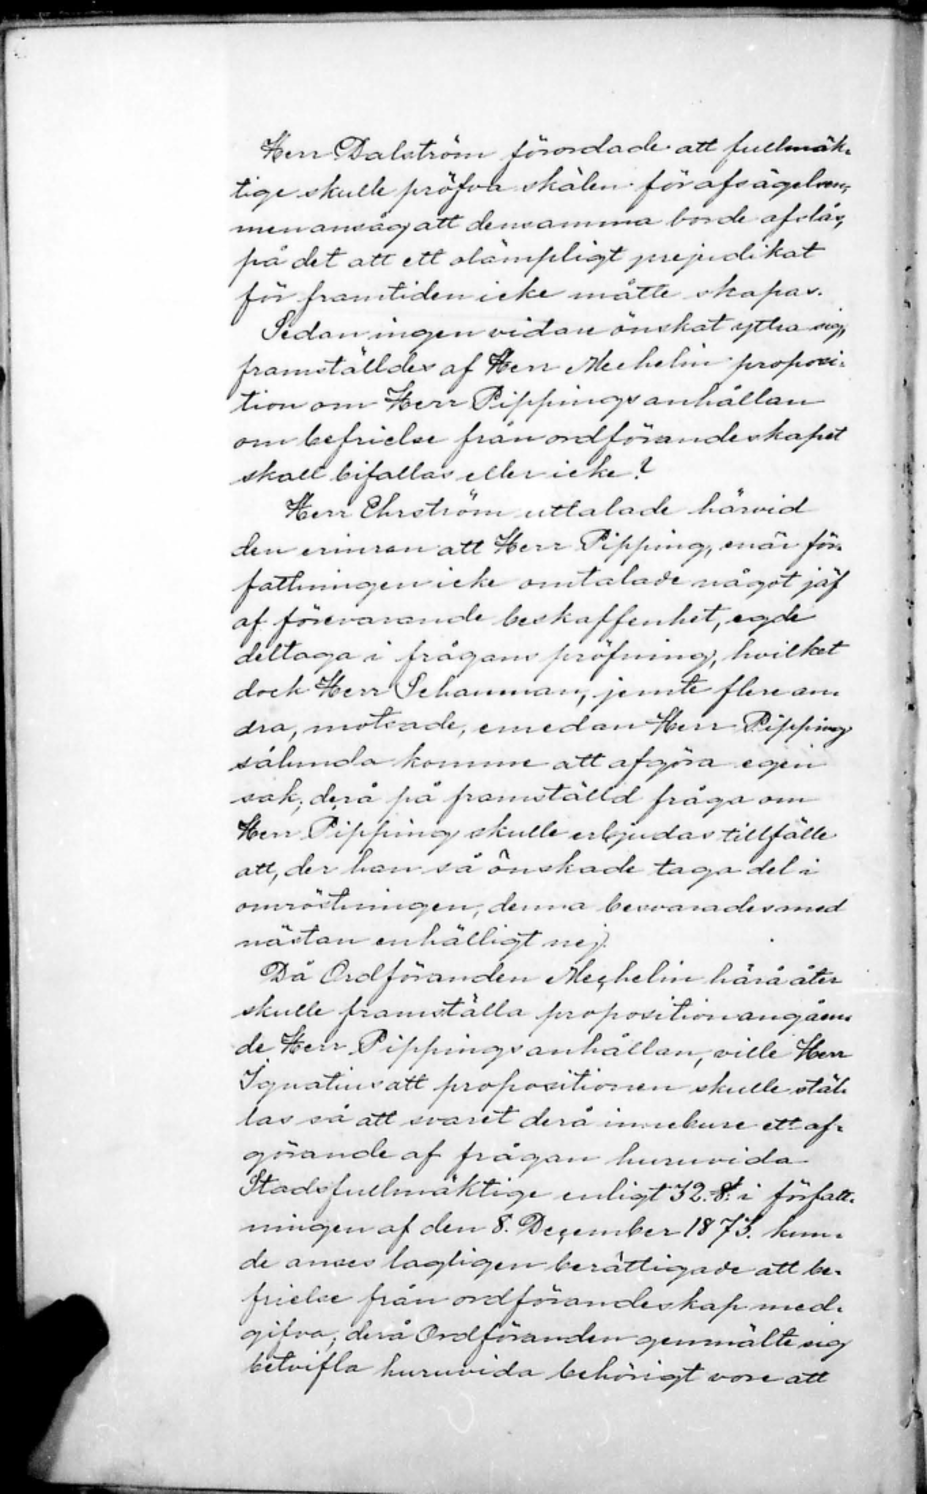 Herr Dalström förordade att fullmäk-
tige skulle pröfva skälen för afsägelsen,
men ansåg att densamma borde afslås,
på det att ett olämpligt prejudikat
för framtiden icke måtte skapas.
Sedan ingen vidare önskat yttra sig,
framställdes af Herr Mechelin proposi-
tion om Herr Pippings anhållan
om befrielse från ordförandeskapet
skall bifallas eller icke?
Herr Ehrström uttalade härvid
den erinran att Herr Pipping, enär för-
fattningen icke omtalade något jäf
af förevarande beskaffenhet, egde
deltaga i frågans pröfning, hvilket
dock Herr Schauman, jemte flere an-
dra, motsade, emedan Herr Pipping
sålunda komme att afgöra egen
sak; derå på framställd fråga om
Herr Pipping skulle erbjudas tillfälle
att, der han så önskade taga del i
omröstningen, denna besvarades med
nästan enhälligt nej.
Då Ordföranden Mechelin härå åter
skulle framställa proposition angåen-
de Herr Pippings anhållan, ville Herr
Ignatius att propositionen skulle stäl-
las så att svaret derå innebure ett af-
görande af frågan huruvida
Stadsfullmäktige enligt 32. §. i författ-
ningen af den 8. December 1873. kun-
de anses lagligen berättigade att be-
frielse från ordförandeskap med-
gifva, derå Ordföranden genmälte sig
betvifla huruvida behörigt vore att